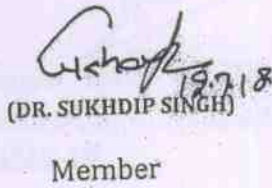 19.7.18
(DR. SUKHDIP SINGH)
Member